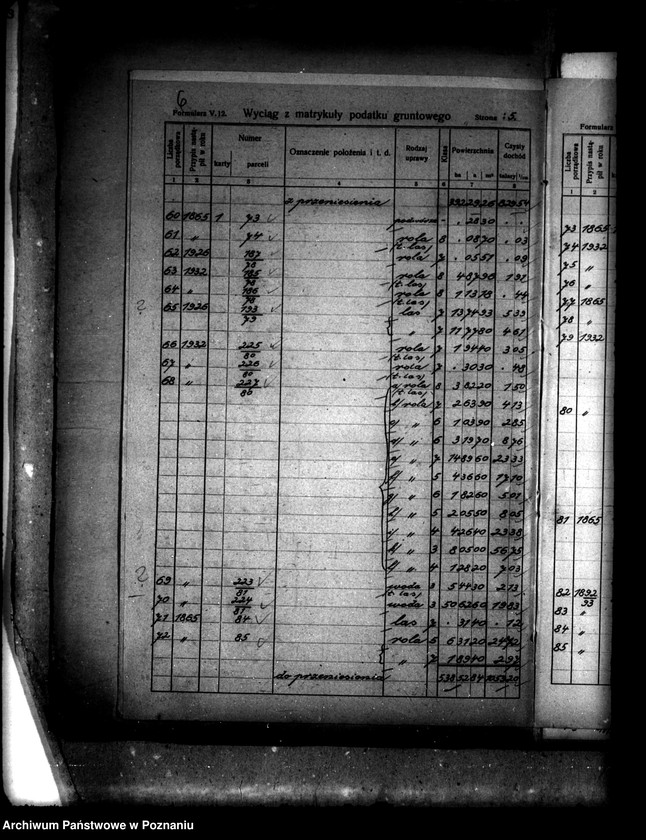 6
Formularz V.12. Wyciąg z matrykuły podatku gruntowego Strona 5.
Liczba porządkowa Przypis nastąpił w roku Numer karty parceli Oznaczenie położenia i t. d. Rodzaj uprawy Klasa Powierzchnia ha a m² Czysty dochód talary 1/100
1 2 3 4 5 6 7 8
z przeniesienia
60 1865 1 73 podwórze - . 2830 . .
61 " 74 rola 8 . 0870 . 03
(t. las)
62 1926 187/78 rola 7 . 0551 . 09
63 1932 185/78 rola 8 48796 191
(t. las)
64 " 186/78 rola 8 11378 . 44
(t. las)
65 1926 193/79 las 7 137493 539
" 7 117780 461
66 1932 225/80 rola 7 19440 305
(t. las)
67 " 226/80 rola 7 . 3030 . 48
(t. las)
68 " 227/80 a/ rola 8 38220 150
(t. las)
b/ rola 7 26390 413
c/ " 6 10390 285
d/ " 6 31970 876
e/ " 7 148960 2333
f/ " 5 43660 1710
g/ " 6 18260 501
h/ " 5 20550 805
i/ " 4 42640 2338
k/ " 3 80500 5675
l/ " 4 12820 703
69 " 223/81 woda 3 54430 213
(t. las)
70 " 224/81 woda 3 506260 1983
71 1865 84 las 7 . 3140 . 12
72 " 85 rola 6 63120 2472
" 7 18940 297
do przeniesienia
Formularz
Liczba porządkowa Przypis nastąpił w roku
1 2
73 1865
74 1932
75 "
76 "
77 1865
78 "
79 1932
80 "
81 1865
82 1892/93
83 "
84 "
85 "
Archiwum Państwowe w Poznaniu